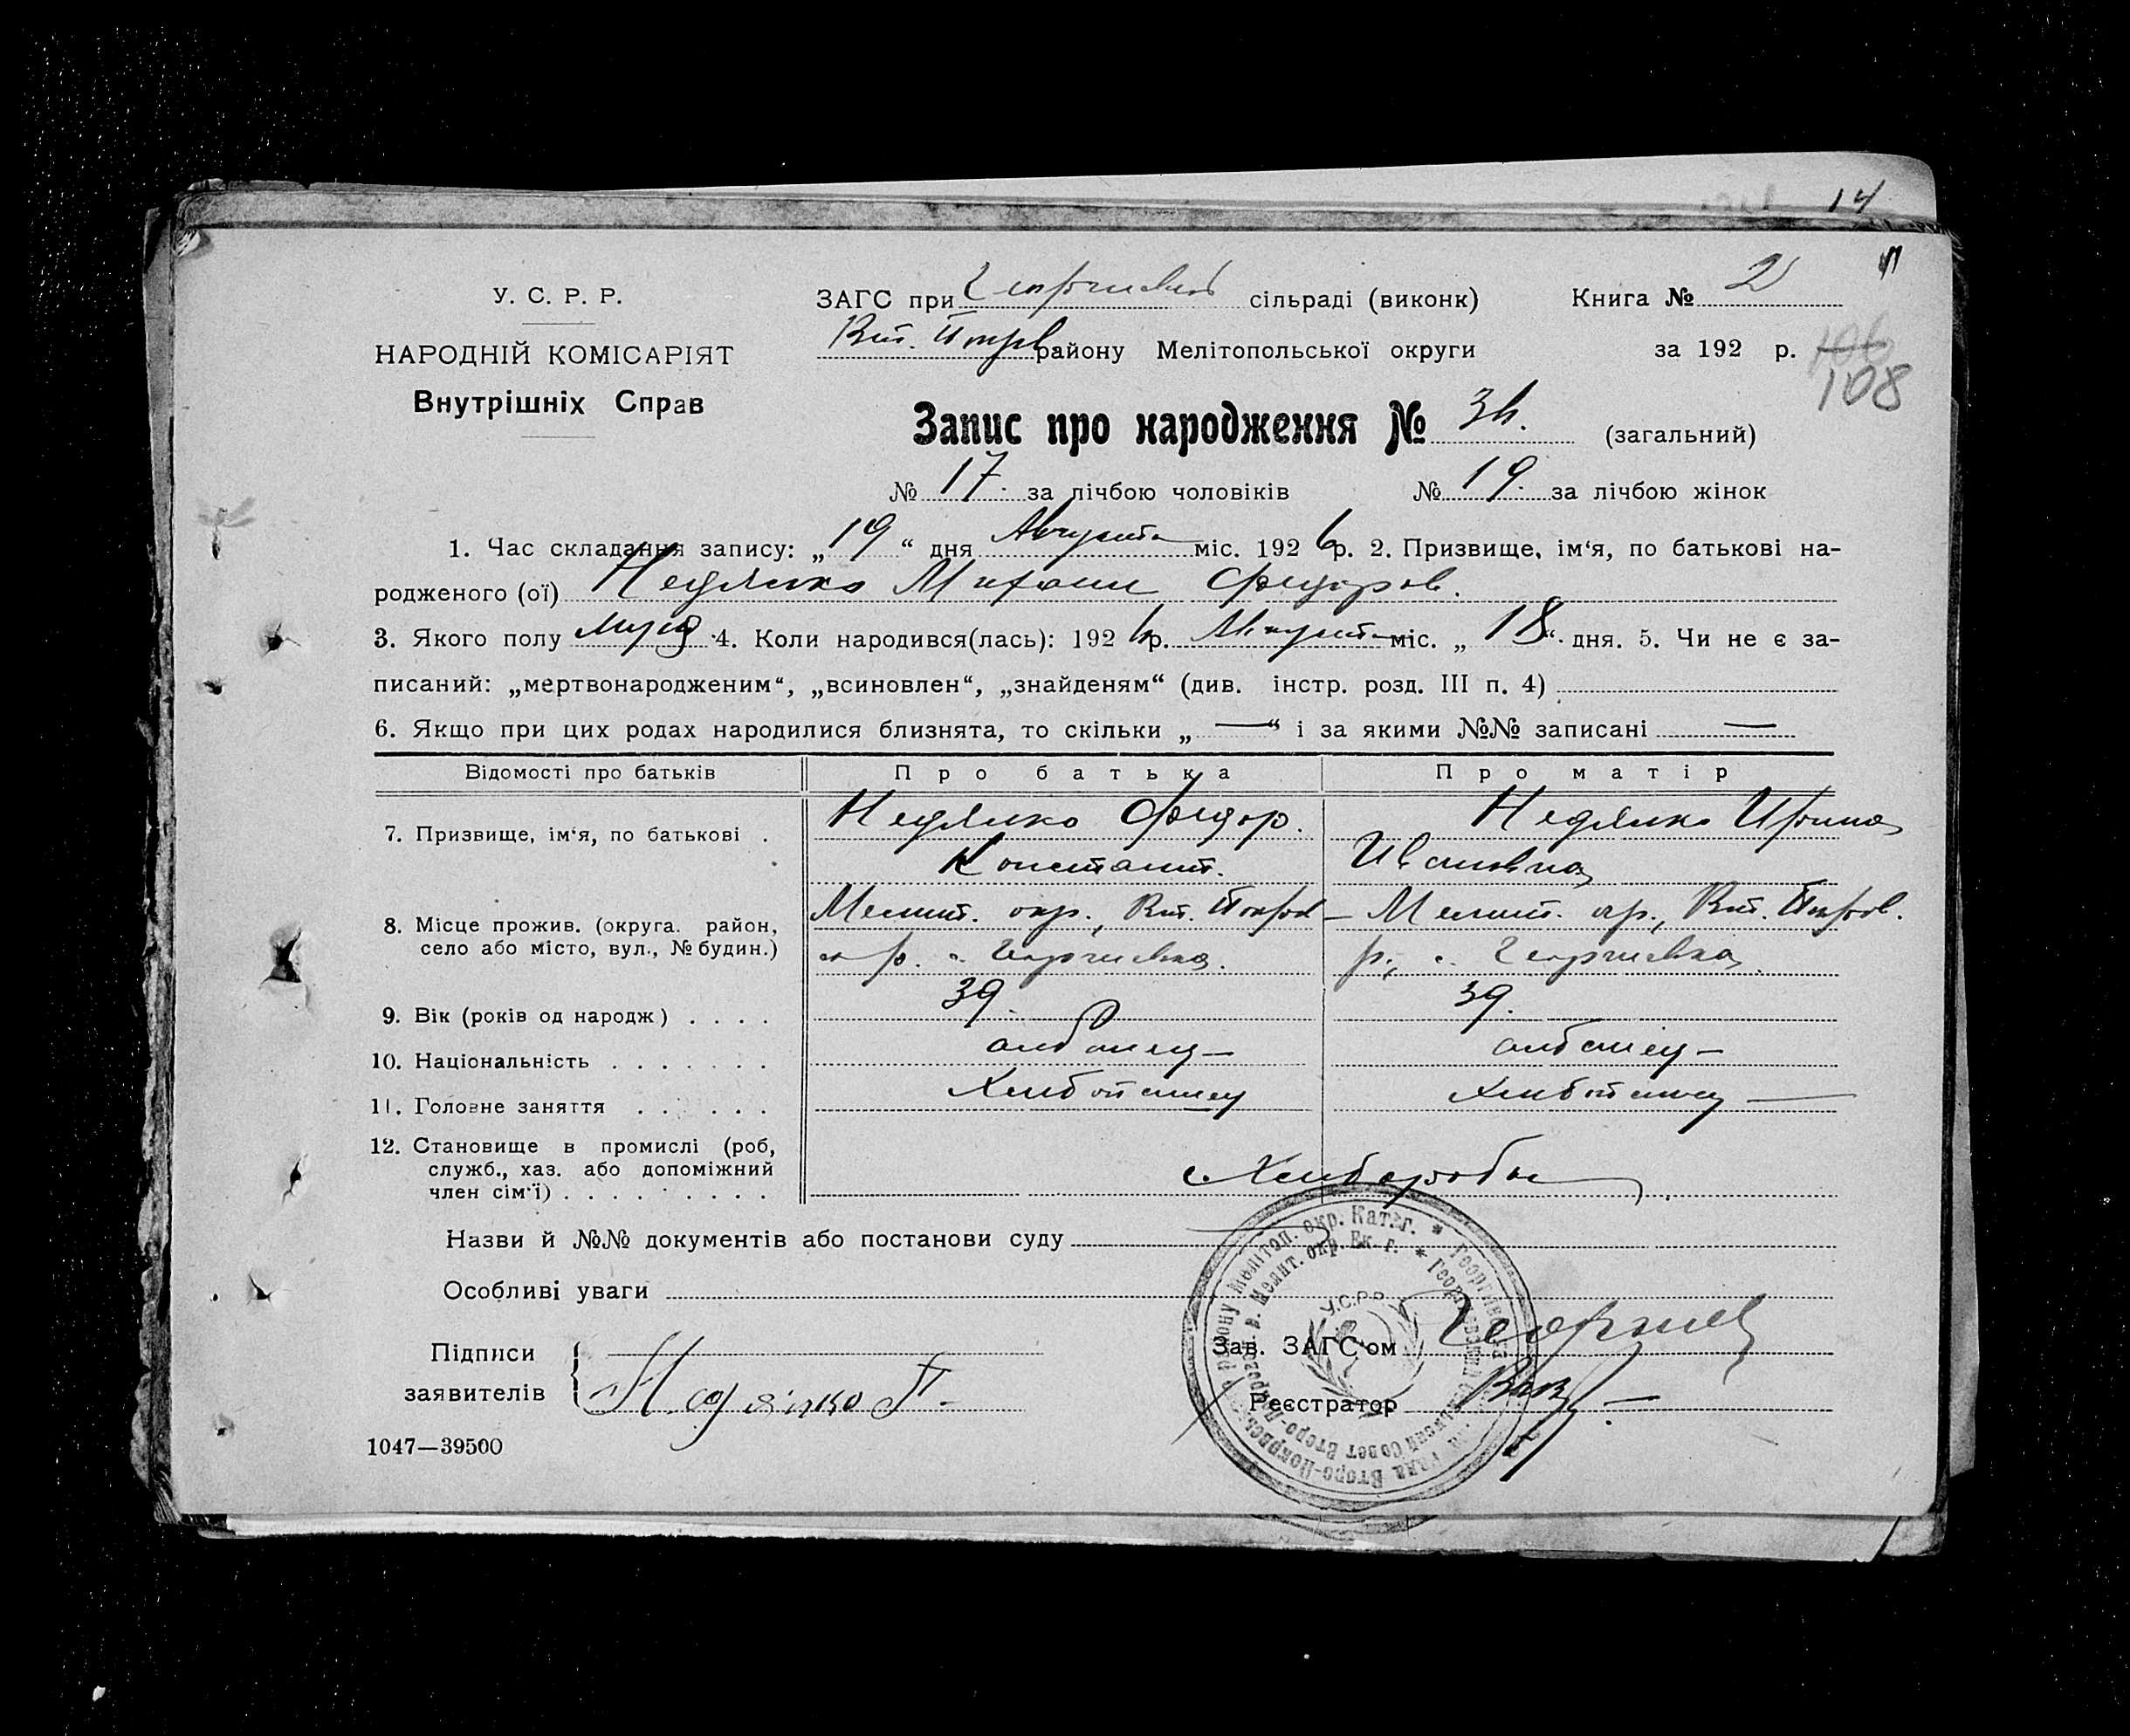 14
У. С. Р. Р.
НАРОДНІЙ КОМІСАРІЯТ
Внутрішніх Справ
ЗАГС при Георгиевской сільраді (виконк) Книга № 2
Вт. Покров. району Мелітопольської округи за 192 р.
106
108
Запис про народження № 36. (загальний)
№ 17. за лічбою чоловіків № 19. за лічбою жінок
1. Час складання запису: „19“ дня Августа міс. 1926 р. 2. Призвище, ім‘я, по батькові на-
родженого (ої) Недялко Михаил Федоров.
3. Якого полу муж. 4. Коли народився(лась): 1926 р. Августа міс. „18“ дня. 5. Чи не є за-
писаний: „мертвонародженим“, „всиновлен“, „знайденям“ (див. інстр. розд. III п. 4)
6. Якщо при цих родах народилися близнята, то скільки „—“ і за якими №№ записані —
Відомості про батьків Про батька Про матір
7. Призвище, ім‘я, по батькові . Недялко Федор. Недялко Ирина
Констант. Ивановна
8. Місце прожив. (округа. район, Мелит. окр., Вт. Покров- Мелит. окр., Вт. Покров.
село або місто, вул., № будин.) р. с. Георгиевка. р., с. Георгиевка.
9. Вік (років од народж) . . . . 39. 39.
10. Національність . . . . . . . албанец— албанец—
11. Головне заняття . . . . . . Хлибопашец Хлибопашец —
12. Становище в промислі (роб,
служб., хаз. або допоміжний Хлиборобы
член сім‘ї) . . . . . . . . . .
Назви й №№ документів або постанови суду
Особливі уваги
Підписи
заявителів Недялко
Зав. ЗАГС‘ом Георгиев
Реєстратор
У.С.Р.Р.
1047—39500